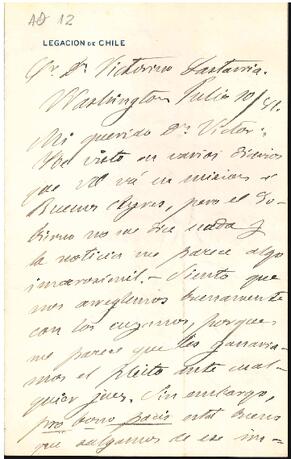 AD 12
LEGACION DE CHILE
Sr. Dn. Victorino Lastarria.
Washington Julio 10/81.
Mi querido Dn. Victor:
He visto en varios diarios
que Vd vá en mision á
Buenos Ayres, pero el Go-
bierno no me dice nada y
la noticia me parece algo
inverosimil.- Siento que
nos arreglemos buenamente
con los cuyanos, porque
me parece que les ganaria-
mos el pleito ante cual-
quier juez. Sin embargo,
pro bono pacis está bueno
que salgamos de ese im-